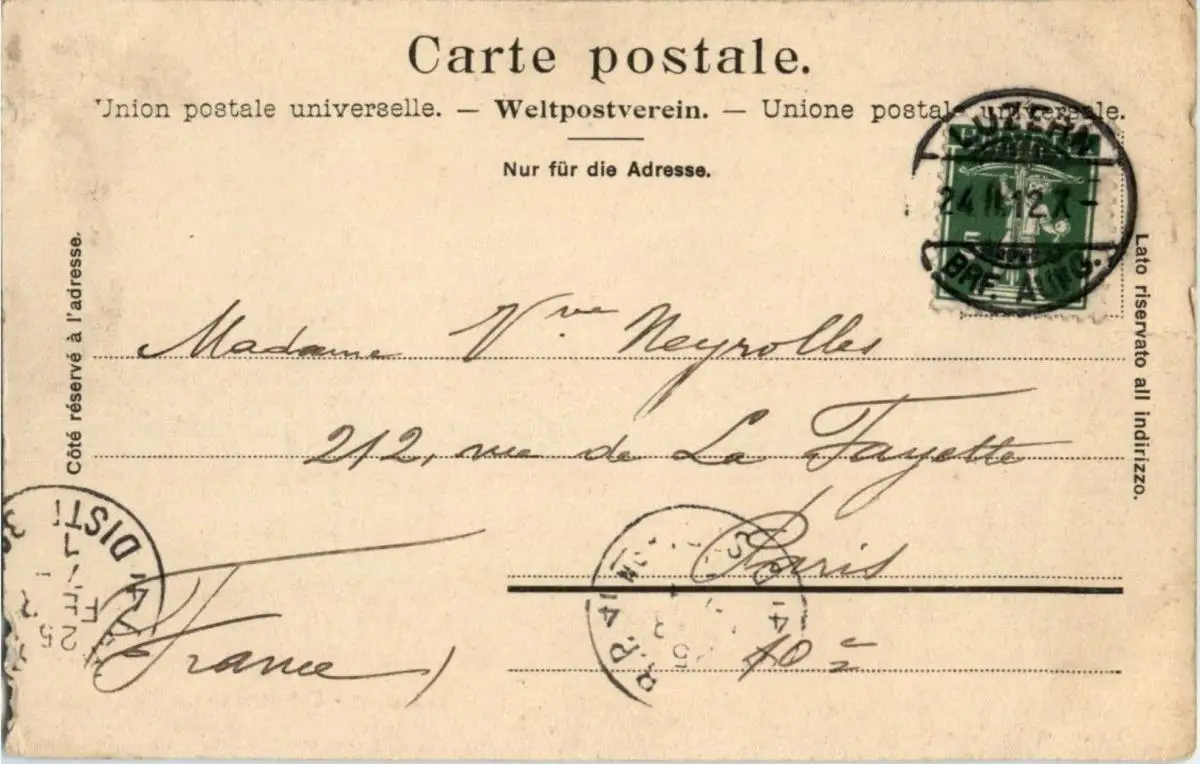 Carte postale.
Union postale universelle. — Weltpostverein. — Unione postale universale.
Nur für die Adresse.
LUZERN
24 II 12 X
BRF. AUFG.
5
Côté réservé à l'adresse.
Lato riservato all indirizzo.
Madame Vve Neyrolles
212, rue de La Fayette
Paris
10e
(France)
DIST
25
R.P.